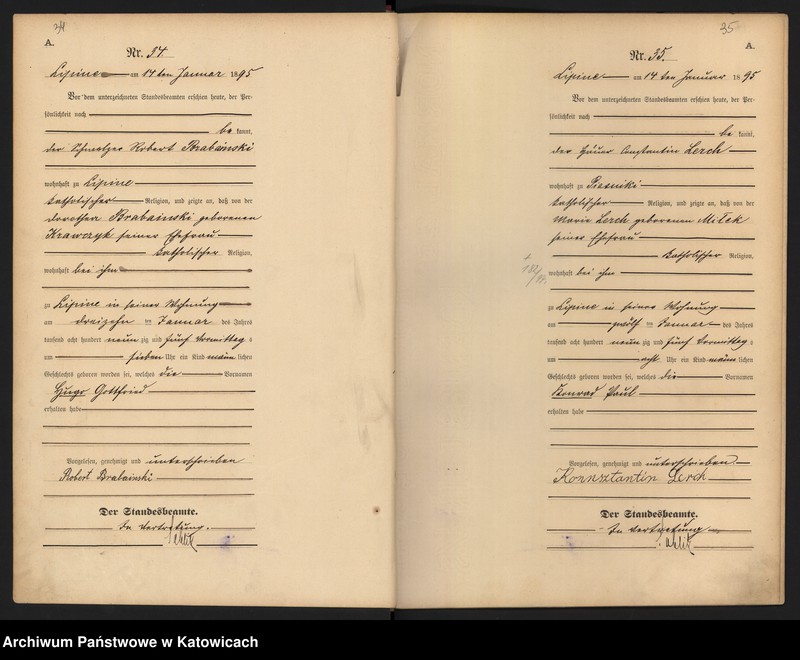 34
A.
Nr. 34
Lipine am 14 ten Januar 1895
Vor dem unterzeichneten Standesbeamten erschien heute, der Per-
sönlichkeit nach
be kannt,
der Schmelzer Robert Brabainski
wohnhaft zu Lipine
katholischer Religion, und zeigte an, daß von der
Dorothea Brabainski geborenen
Krawczyk seiner Ehefrau
katholischer Religion,
wohnhaft bei ihm
zu Lipine in seiner Wohnung
am dreizehn ten Januar des Jahres
tausend acht hundert neun zig und fünf Vormittag s
um sieben Uhr ein Kind männ lichen
Geschlechts geboren worden sei, welches die Vornamen
Hugo Gottfried
erhalten habe
Vorgelesen, genehmigt und unterschrieben
Robert Brabainski
Der Standesbeamte.
In Vertretung.
35
A.
Nr. 35.
Lipine am 14 ten Januar 1895
Vor dem unterzeichneten Standesbeamten erschien heute, der Per-
sönlichkeit nach
be kannt,
der Häuer Constantin Lerch
wohnhaft zu Piasniki
katholischer Religion, und zeigte an, daß von der
Marie Lerch geborenen Miłek
seiner Ehefrau
katholischer Religion,
wohnhaft bei ihm
zu Lipine in seiner Wohnung
am zwölf ten Januar des Jahres
tausend acht hundert neun zig und fünf Vormittag s
um acht Uhr ein Kind männ lichen
Geschlechts geboren worden sei, welches die Vornamen
Konrad Paul
erhalten habe
Vorgelesen, genehmigt und unterschrieben.
Konnsztantin Lerch
Der Standesbeamte.
In Vertretung
Archiwum Państwowe w Katowicach